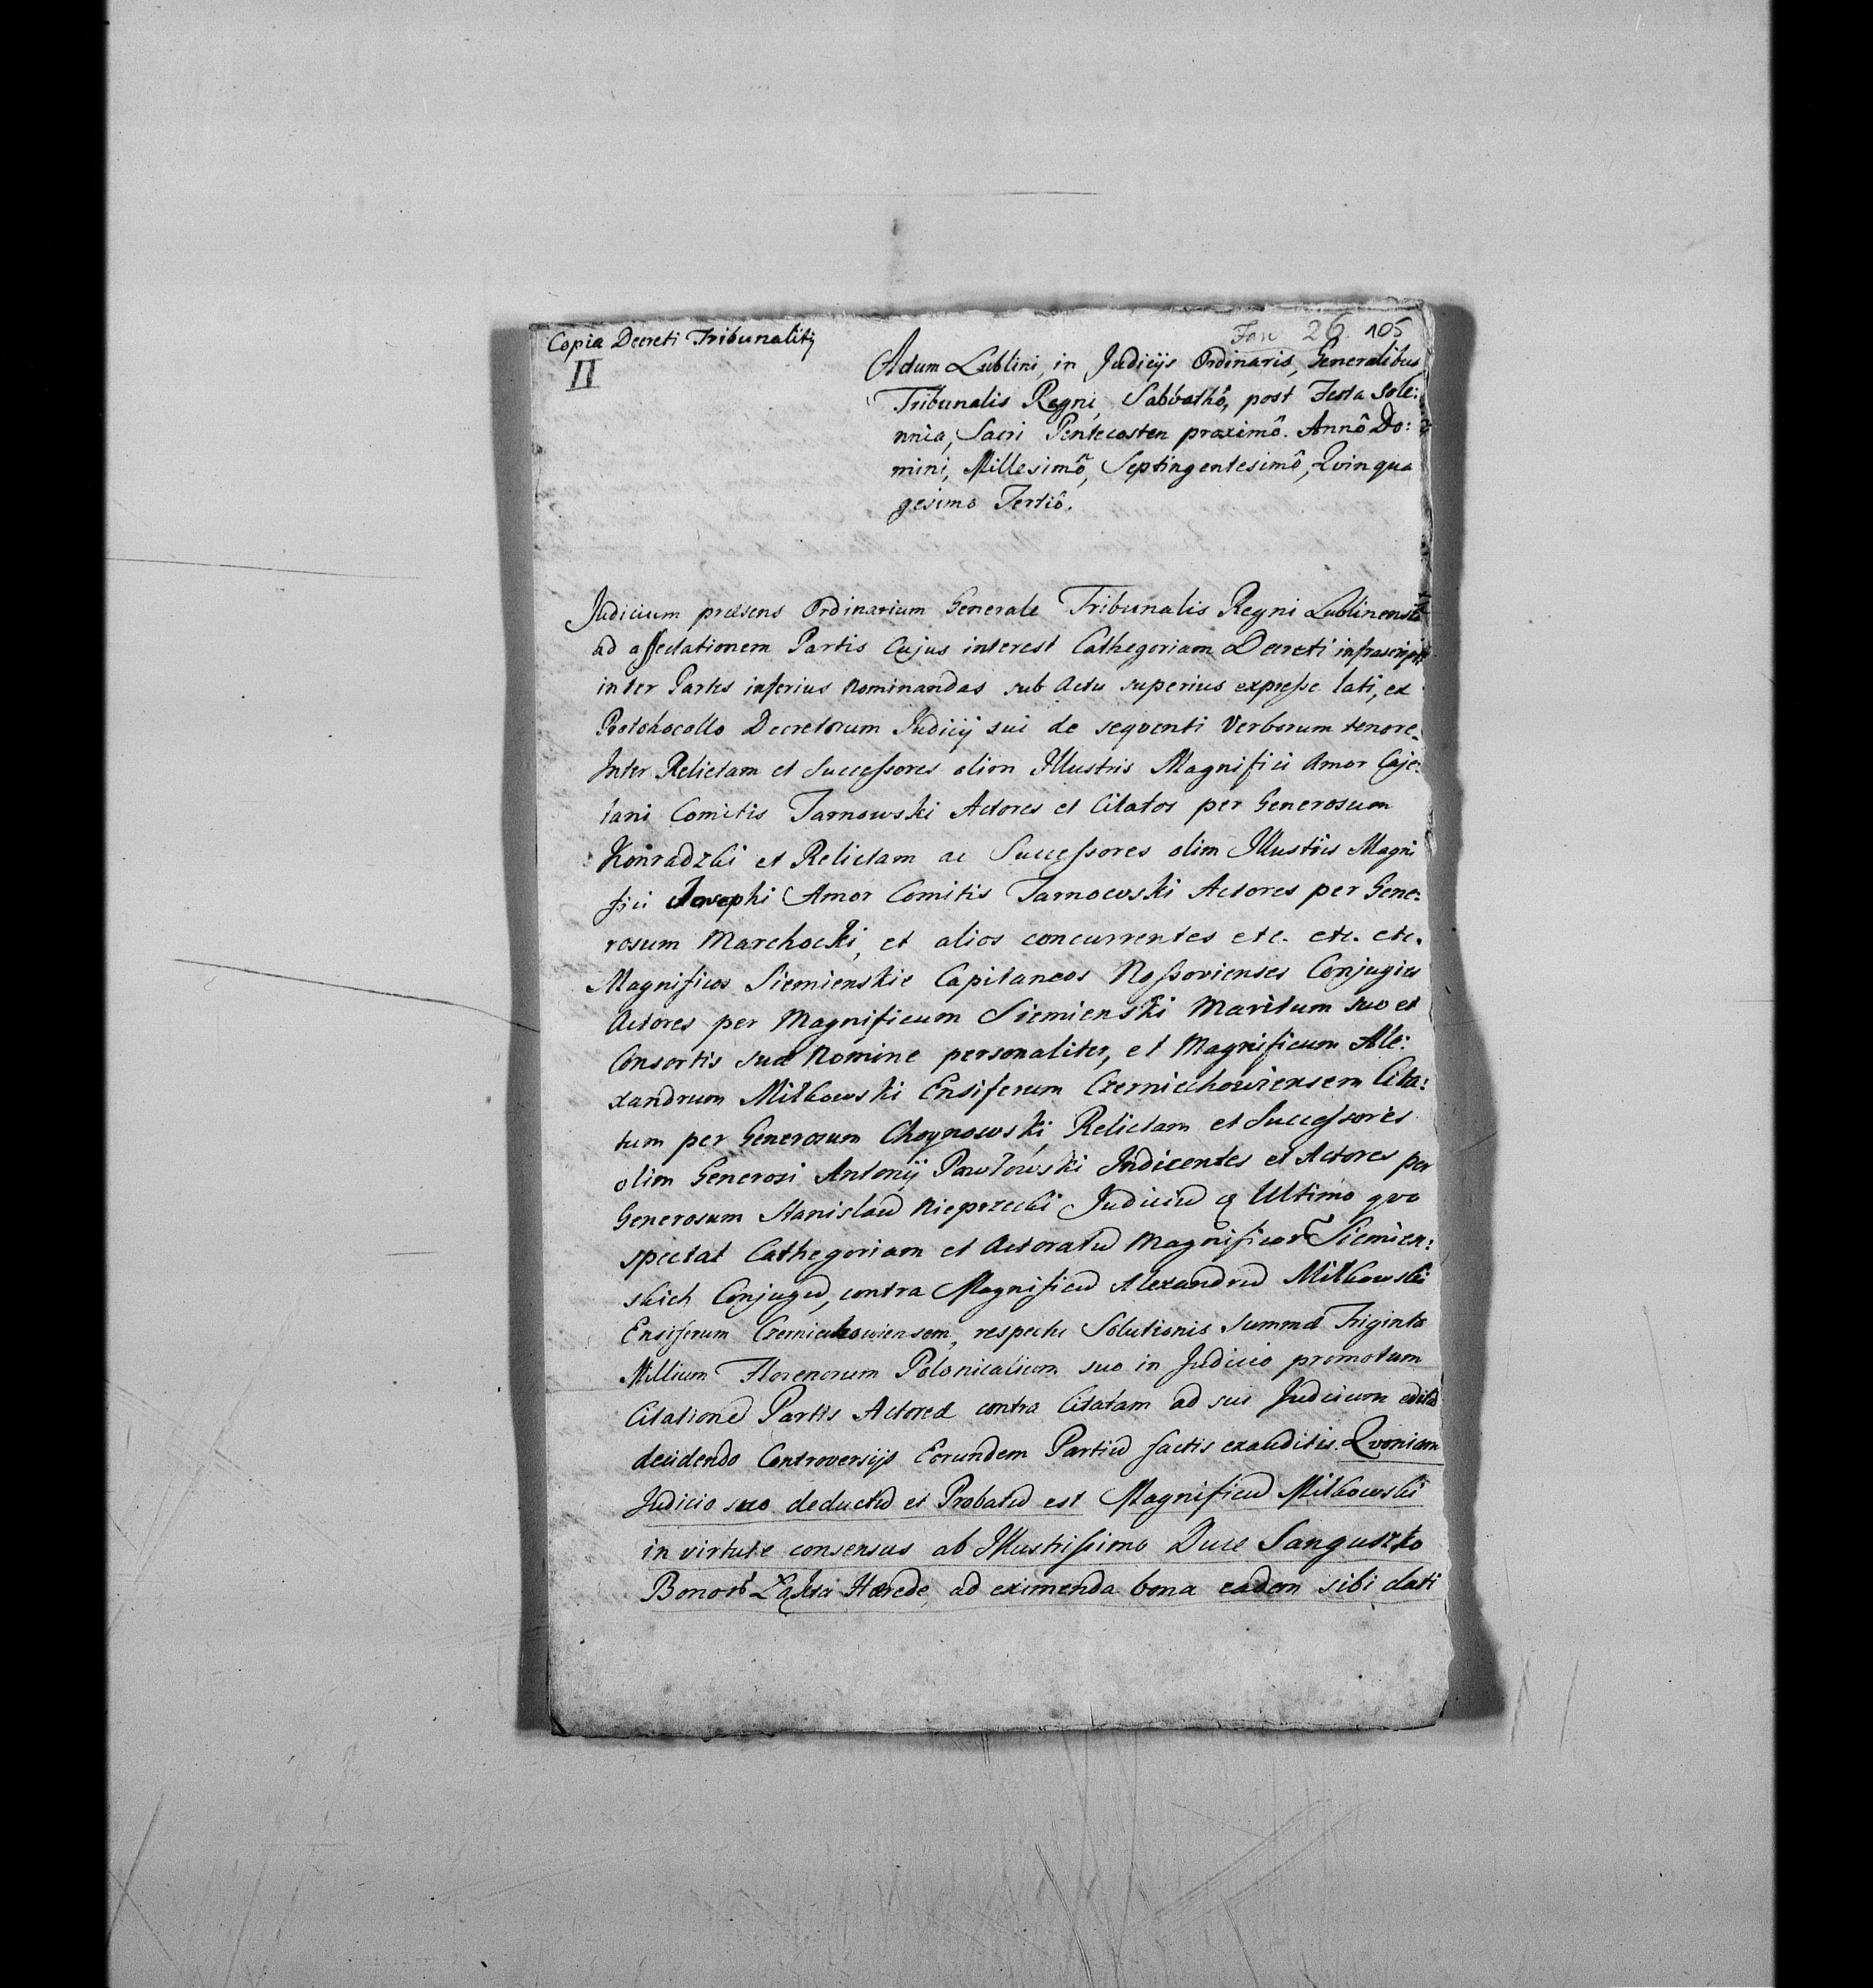 Copia Decreti Tribunalitij
26. 105
II
Actum Lublini, in Judicijs Ordinaris, Generalibus
Tribunalis Regni, Sabbathô, post Festa Sole:
nnia, Sacri Pentecosten proximô. Annô Do:
mini, Millesimô, Septingentesimô, Qvinqua
gesimo Tertiô.
Judicium præsens Ordinarium Generale Tribunalis Regni Lublinense
ad affectationem Partis Cujus interest Cathegoriam Decreti infrascripti
inter Partes inferius Nominandas sub Actu superius expresse lati, ex
Prothocollo Decretorum Judicij sui de seqventi Verborum tenore.
Inter Relictam et Successores olim Illustris Magnifici Amor Caje:
tani Comitis Tarnowski Actores et Citatos per Generosum
Konradzki et Relictam ac Successores olim Illustris Magni
fici Josephi Amor Comitis Tarnowski Actores per Gene:
rosum Marchocki, et alios concurrentes etc. etc. etc.
Magnificos Siemienskie Capitaneos Nossovienses Conjuges
Actores per Magnificum Siemienski Maritum suo et
Consortis suæ Nomine personaliter, et Magnificum Ale:
xandrum Miłkowski Ensiferum Czerniechoviensem Cita:
tum per Generosum Choynowski, Relictam et Successores
olim Generosi Antonij Pawłowski Indicentes et Actores per
Generosum Stanislaū Nieprzecki Judiciū q Ultimo qvo
spectat Cathegoriam et Actoratū Magnificor Siemien:
skich Conjugū, contra Magnificū Alexandrū Miłkowski
Ensiferum Czerniechowiensem, respectu Solutionis Summæ Triginta
Millium Florenorum Polonicalium suo in Judicio promotum
Citatione Partis Actoreæ contra Citatam ad sui Judicium edita
decidendo Controversijs Eorundem Partiū satis exauditis. Qvoniam
Judicio suo deductū et Probatū est Magnificū Miłkowski
in virtute consensus ab Illustrissimo Duce Sanguszko
Bonor Hærede, ad eximenda bona eadem sibi dati